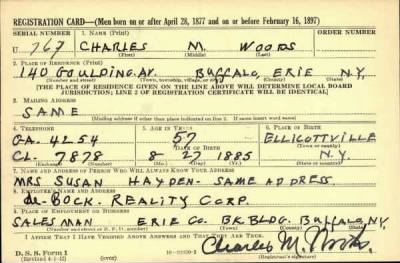 REGISTRATION CARD—(Men born on or after April 28, 1877 and on or before February 16, 1897)
SERIAL NUMBER 1. NAME (Print) ORDER NUMBER
U 767 CHARLES M. WOODS
(First) (Middle) (Last)
2. PLACE OF RESIDENCE (Print)
140 GOULDING. AV. BUFFALO, ERIE N.Y.
(Number and street) (Town, township, village, or city) (County) (State)
[THE PLACE OF RESIDENCE GIVEN ON THE LINE ABOVE WILL DETERMINE LOCAL BOARD
JURISDICTION; LINE 2 OF REGISTRATION CERTIFICATE WILL BE IDENTICAL]
3. MAILING ADDRESS
SAME
[Mailing address if other than place indicated on line 2. If same insert word same]
4. TELEPHONE 5. AGE IN YEARS 6. PLACE OF BIRTH
GA. 4254 57 ELLICOTTVILLE
DATE OF BIRTH (Town or county)
CL- 7878 8 - 27 1885 N.Y.
(Exchange) (Number) (Mo.) (Day) (Yr.) (State or country)
7. NAME AND ADDRESS OF PERSON WHO WILL ALWAYS KNOW YOUR ADDRESS
MRS SUSAN HAYDEN- SAME ADDRESS.
8. EMPLOYER'S NAME AND ADDRESS
de-BOCK. REALITY CORP.
9. PLACE OF EMPLOYMENT OR BUSINESS
SALESMAN ERIE CO. BK. BLDG. BUFFALO, N.Y.
(Number and street or R. F. D. number) (Town) (County) (State)
I AFFIRM THAT I HAVE VERIFIED ABOVE ANSWERS AND THAT THEY ARE TRUE.
Charles M. Woods.
D. S. S. Form 1
(Revised 4-1-42) (Registrant's signature)